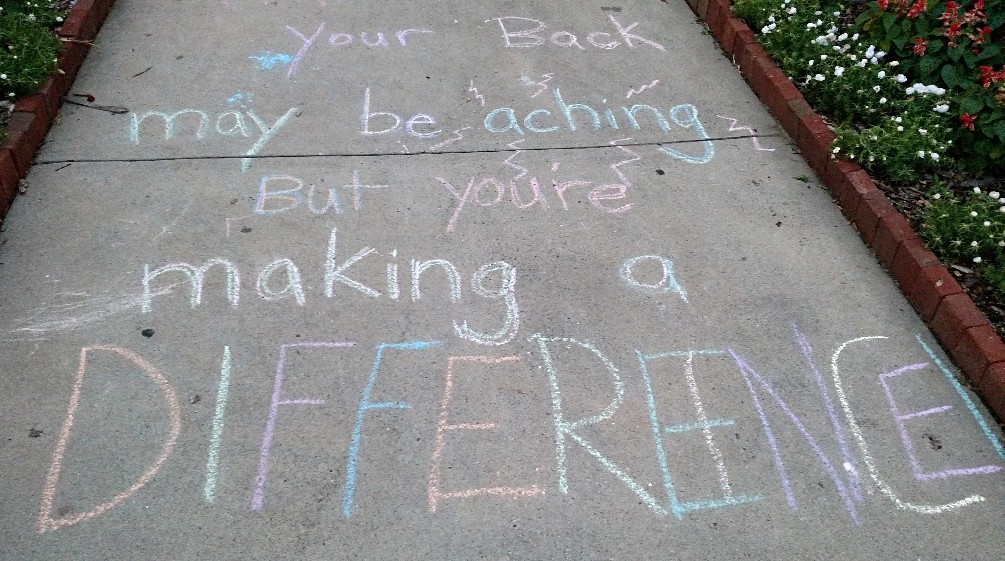 your Back
may be aching
But you're
making a
DIFFERENCE!